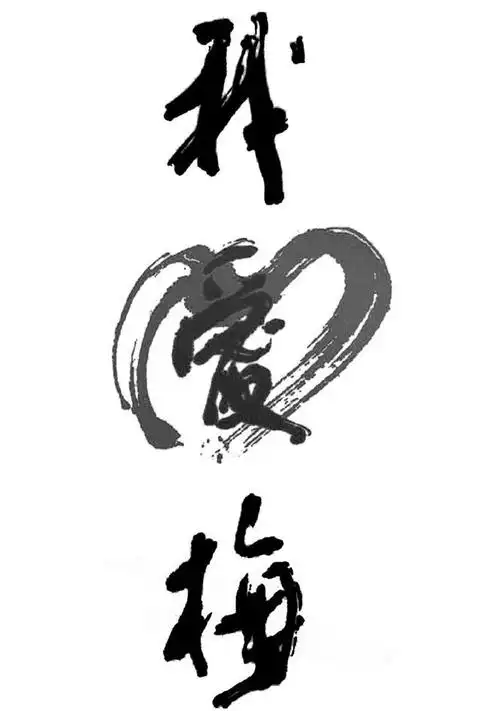 我
愛
梅